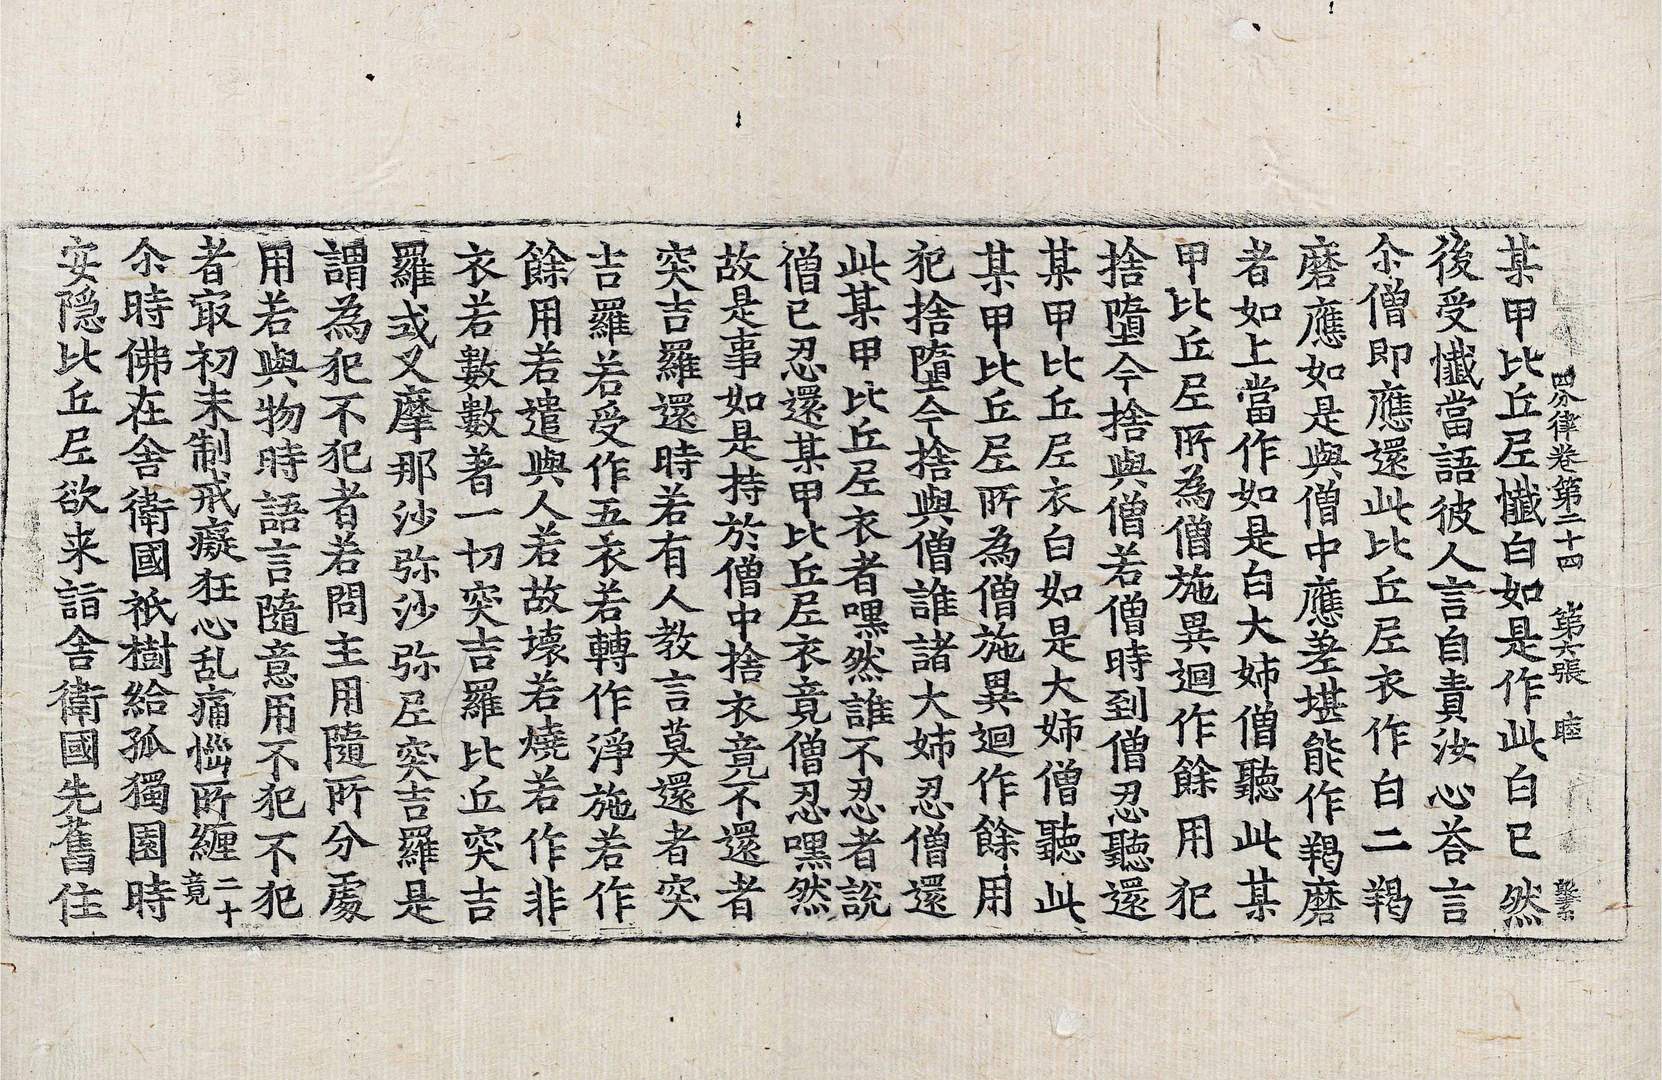 四分律卷第二十四　第六張　睦
某甲比丘尼懺白如是作此白已然
後受懺當語彼人言自責汝心荅言
尒僧即應還此比丘尼衣作白二羯
磨應如是與僧中應差堪能作羯磨
者如上當作如是白大姊僧聽此某
甲比丘尼所為僧施異迴作餘用犯
捨墮今捨與僧若僧時到僧忍聽還
某甲比丘尼衣白如是大姊僧聽此
某甲比丘尼所為僧施異迴作餘用
犯捨墮今捨與僧誰諸大姊忍僧還
此某甲比丘尼衣者嘿然誰不忍者說
僧已忍還某甲比丘尼衣竟僧忍嘿然
故是事如是持於僧中捨衣竟不還者
突吉羅還時若有人教言莫還者突
吉羅若受作五衣若轉作淨施若作
餘用若遣與人若故壞若燒若作非
衣若數數著一切突吉羅比丘突吉
羅式叉摩那沙弥沙弥尼突吉羅是
謂為犯不犯者若問主用隨所分處
用若與物時語言隨意用不犯不犯
者㝡初未制戒癡狂心乱痛惱所纏二十竟
尒時佛在舍衛國祇樹給孤獨園時
安隱比丘尼欲来詣舍衛國先舊住